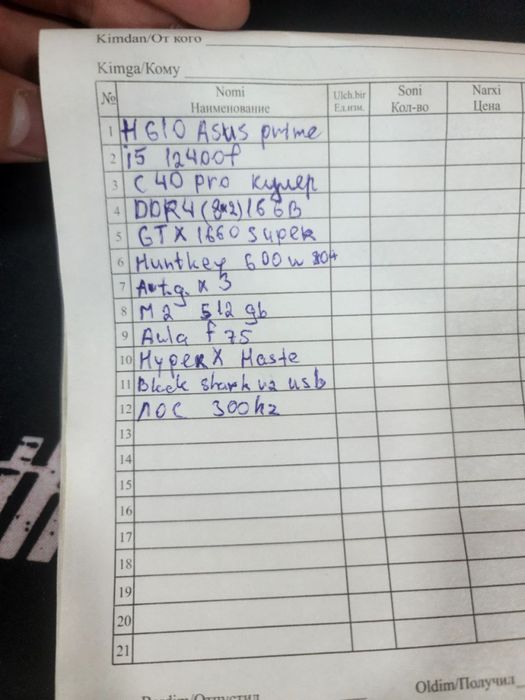 Kimdan/От кого
Kimga/Кому
№ Nomi Наименование Ulch.bir Ед.изм. Soni Кол-во Narxi Цена
1 H610 Asus prime
2 i5 12400f
3 C 40 pro кулер
4 DDR4 (8x2) 16 GB
5 GTX 1660 super
6 Huntkey 600w 80+
7 x 3
8 M2 512 gb
9 Aula f 75
10 HyperX Haste
11 Black shark v2 usb
12 ЛОС 300hz
13
14
15
16
17
18
19
20
21
Oldim/Получил